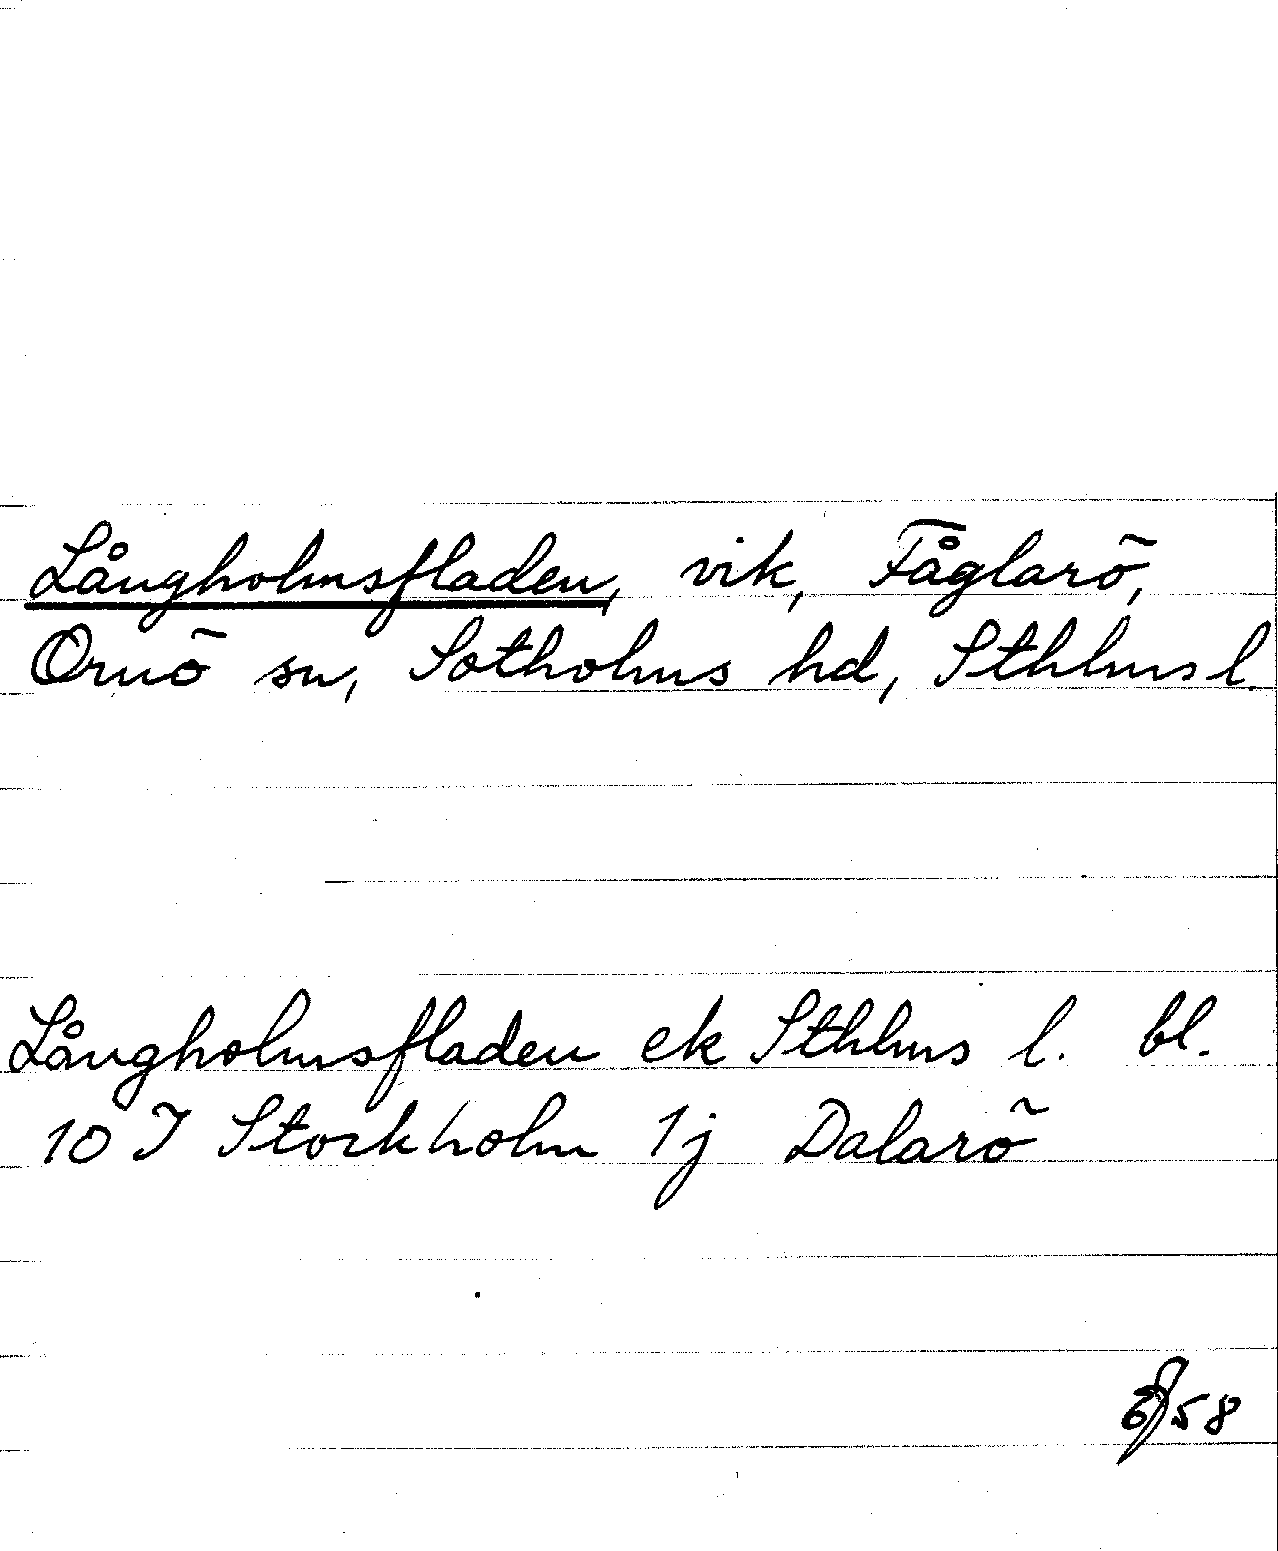 Långholmsfladen, vik, Fåglarö,
Ornö sn, Sotholms hd, Sthlms l.
Långholmsfladen ek Sthlms l. bl.
10 I Stockholm 1j Dalarö
58